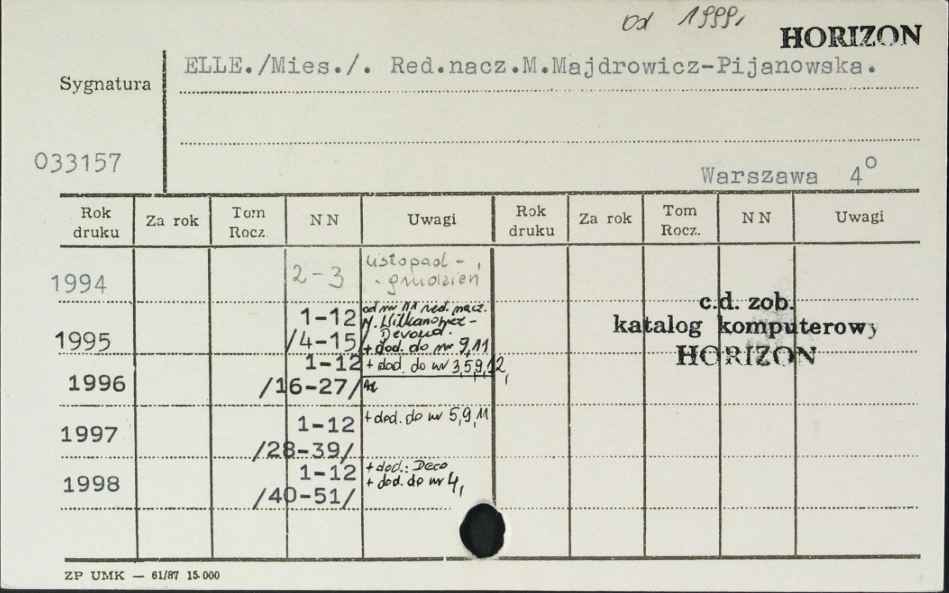 od 1999,
HORIZON
Sygnatura
ELLE./Mies./. Red.nacz.M.Majdrowicz-Pijanowska.
033157
Warszawa 4°
Rok druku Za rok Tom Rocz. N N Uwagi Rok druku Za rok Tom Rocz. N N Uwagi
1994 2-3 listopad -
- grudzień
c.d. zob.
katalog komputerowy
HORIZON
1995 1-12 od nr 11 red. nacz.
/4-15/
+ dod. do nr 9,11
1996 1-12 + dod. do nr 3,5,9,12,
/16-27/
1997 1-12 + dod. do nr 5,9,11
/28-39/
1998 1-12 + dod.: Deco
/40-51/ + dod. do nr 4,
ZP UMK — 61/87 15 000